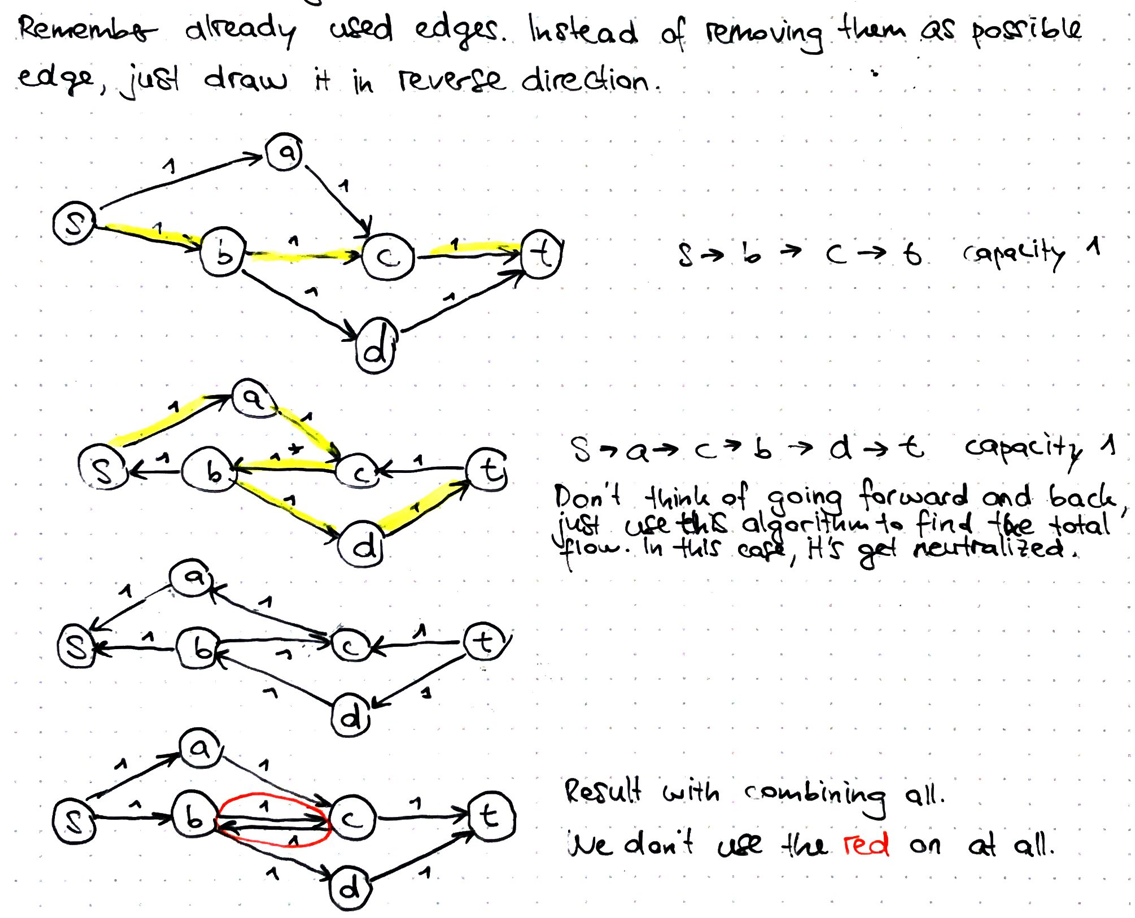 Remember already used edges. Instead of removing them as possible
edge, just draw it in reverse direction.
a
1
1
S
1
b
1
c
1
t
S → b → c → t capacity 1
1
1
d
a
1
1
S
1
b
1 *
c
1
t
S → a → c → b → d → t capacity 1
1
1
d
Don't think of going forward and back,
just use this algorithm to find the total
flow. In this case, it's get neutralized.
a
1
1
S
1
b
1
c
1
t
1
1
d
a
1
1
S
1
b
1
1
c
1
t
1
1
d
Result with combining all.
We don't use the red on at all.